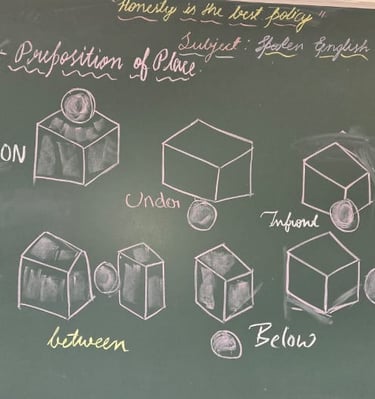 Honesty is the best policy"
Subject: Spoken English
Preposition of Place
ON
Under
Infront
between
Below